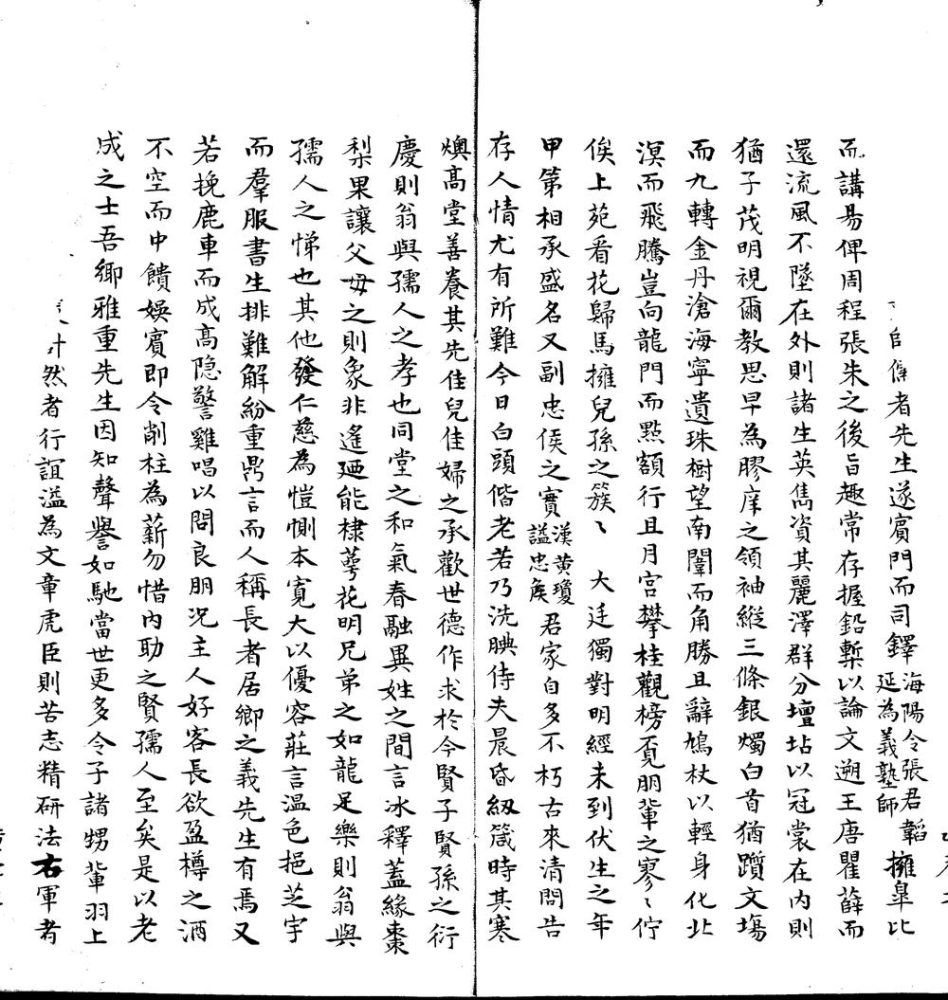 自雋者先生遂賓門而司鐸海陽令張君韜延為義塾師擁皐比
而講易俾周程張朱之後旨趣常存握鉛槧以論文遡王唐瞿薛而
還流風不墜在外則諸生英雋資其麗澤群分壇坫以冠裳在內則
猶子茂明視爾教思早為膠庠之領袖縱三條銀燭白首猶躓文場
而九轉金丹滄海寧遺珠樹望南闈而角勝且辭鳩杖以輕身化北
溟而飛騰豈向龍門而點額行且月宮攀桂觀榜覓朋輩之寥〻佇
俟上苑看花歸馬擁兒孫之簇〻 大廷獨對明經未到伏生之年
甲第相承盛名又副忠侯之實漢黄瓊謚忠侯君家自多不朽古來清問告
存人情尤有所難今日白頭偕老若乃洗腆侍夫晨昏紉箴時其寒
燠高堂善養其先佳兒佳婦之承歡世德作求於今賢子賢孫之衍
慶則翁與孺人之孝也同堂之和氣春融異姓之間言冰釋蓋緣棗
梨果讓父母之則象非遙廼能棣萼花明兄弟之如龍足樂則翁與
孺人之悌也其他發仁慈為愷惻本寬大以優容莊言溫色挹芝宇
而羣服書生排難解紛重鼎言而人稱長者居鄉之義先生有焉又
若挽鹿車而成高隐警雞唱以問良朋況主人好客長欲盈樽之酒
不空而中饋娛賓即令削柱為薪勿惜內助之賢孺人至矣是以老
成之士吾鄉雅重先生因知聲譽如馳當世更多令子諸甥輩羽上
計然者行誼溢為文章虎臣則苦志精研法右軍者